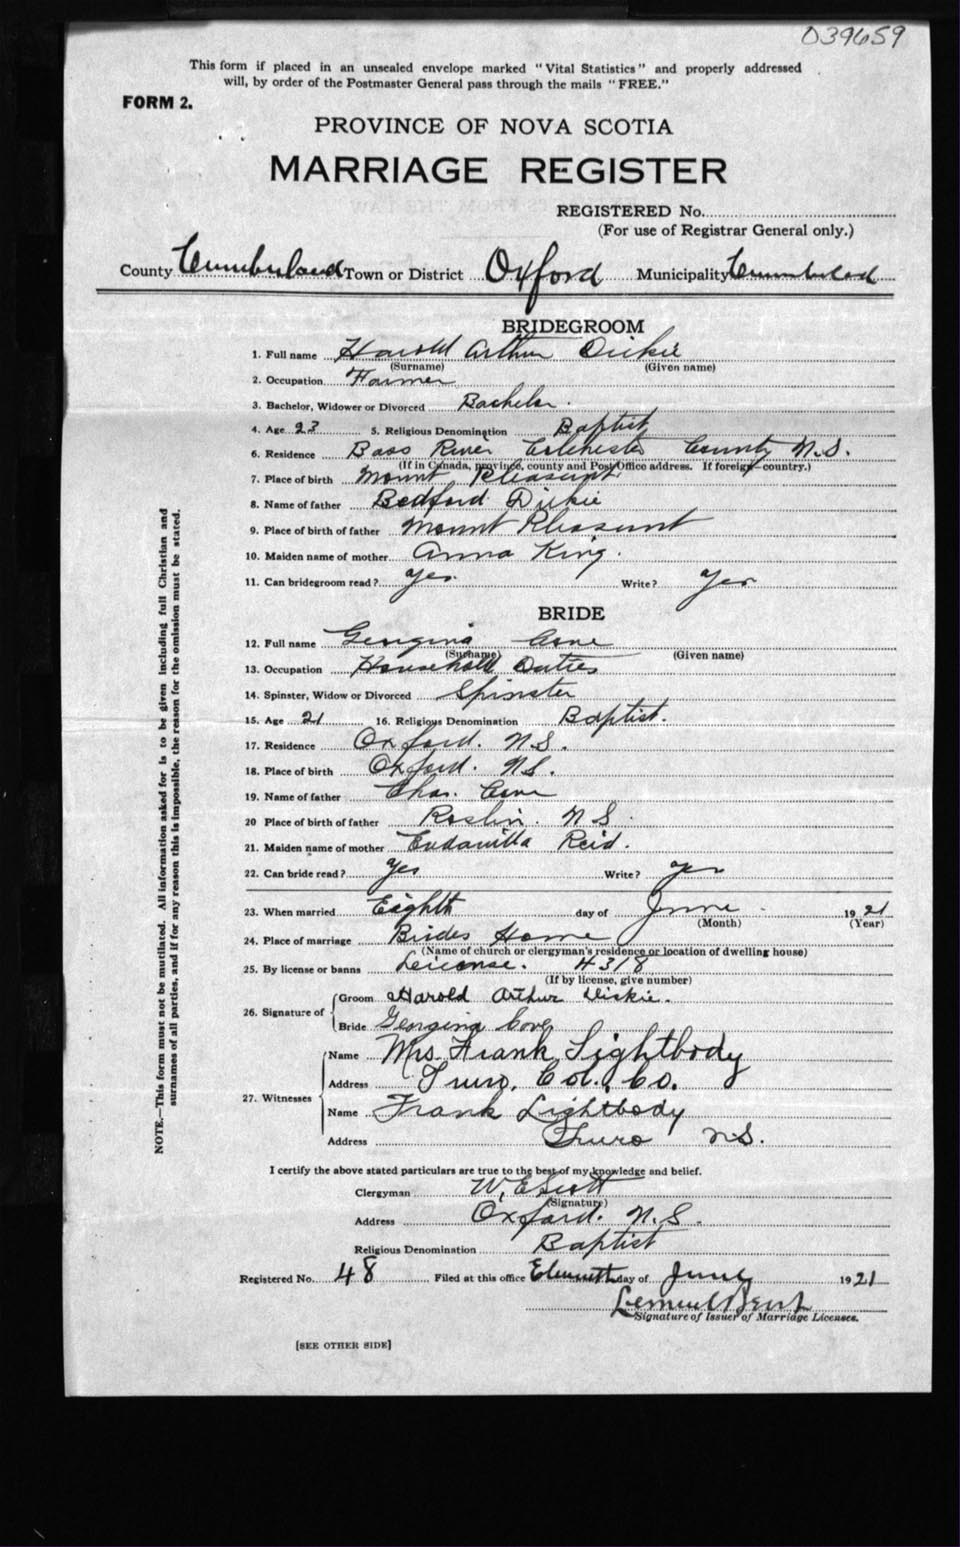 039659
This form if placed in an unsealed envelope marked "Vital Statistics" and properly addressed
will, by order of the Postmaster General pass through the mails "FREE."
FORM 2.
PROVINCE OF NOVA SCOTIA
MARRIAGE REGISTER
REGISTERED No.
(For use of Registrar General only.)
County Cumberland Town or District Oxford Municipality Cumberland
BRIDEGROOM
1. Full name Harold Arthur Dickie
(Surname) (Given name)
2. Occupation Farmer
3. Bachelor, Widower or Divorced Bachelor.
4. Age 23 5. Religious Denomination Baptist
6. Residence Bass River Colchester County N.S.
(If in Canada, province, county and Post Office address. If foreign country.)
7. Place of birth Mount Pleasant
8. Name of father Bedford Dickie
9. Place of birth of father Mount Pleasant
10. Maiden name of mother Anna King.
11. Can bridegroom read? Yes. Write? Yes
BRIDE
12. Full name Georgina Cove
(Surname) (Given name)
13. Occupation Household Duties
14. Spinster, Widow or Divorced Spinster
15. Age 21 16. Religious Denomination Baptist.
17. Residence Oxford. N.S.
18. Place of birth Oxford. N.S.
19. Name of father Chas. Cove
20 Place of birth of father Roslin. N S.
21. Maiden name of mother Reid.
22. Can bride read? Yes Write? Yes
23. When married Eighth day of June 1921
(Month) (Year)
24. Place of marriage Brides Home
(Name of church or clergyman's residence or location of dwelling house)
25. By license or banns License. 4318
(If by license, give number)
26. Signature of
Groom Harold Arthur Dickie.
Bride Georgina Cove
27. Witnesses
Name Mrs. Frank Lightbody
Address Truro, Col. Co.
Name Frank Lightbody
Address Truro N.S.
I certify the above stated particulars are true to the best of my knowledge and belief.
Clergyman W, E Scott
(Signature)
Address Oxford. N.S.
Religious Denomination Baptist
Registered No. 48 Filed at this office day of June 1921
Lemuel Bent
Signature of Issuer of Marriage Licenses.
[SEE OTHER SIDE]
NOTE.—This form must not be mutilated. All information asked for is to be given including full Christian and
surnames of all parties, and if for any reason this is impossible, the reason for the omission must be stated.